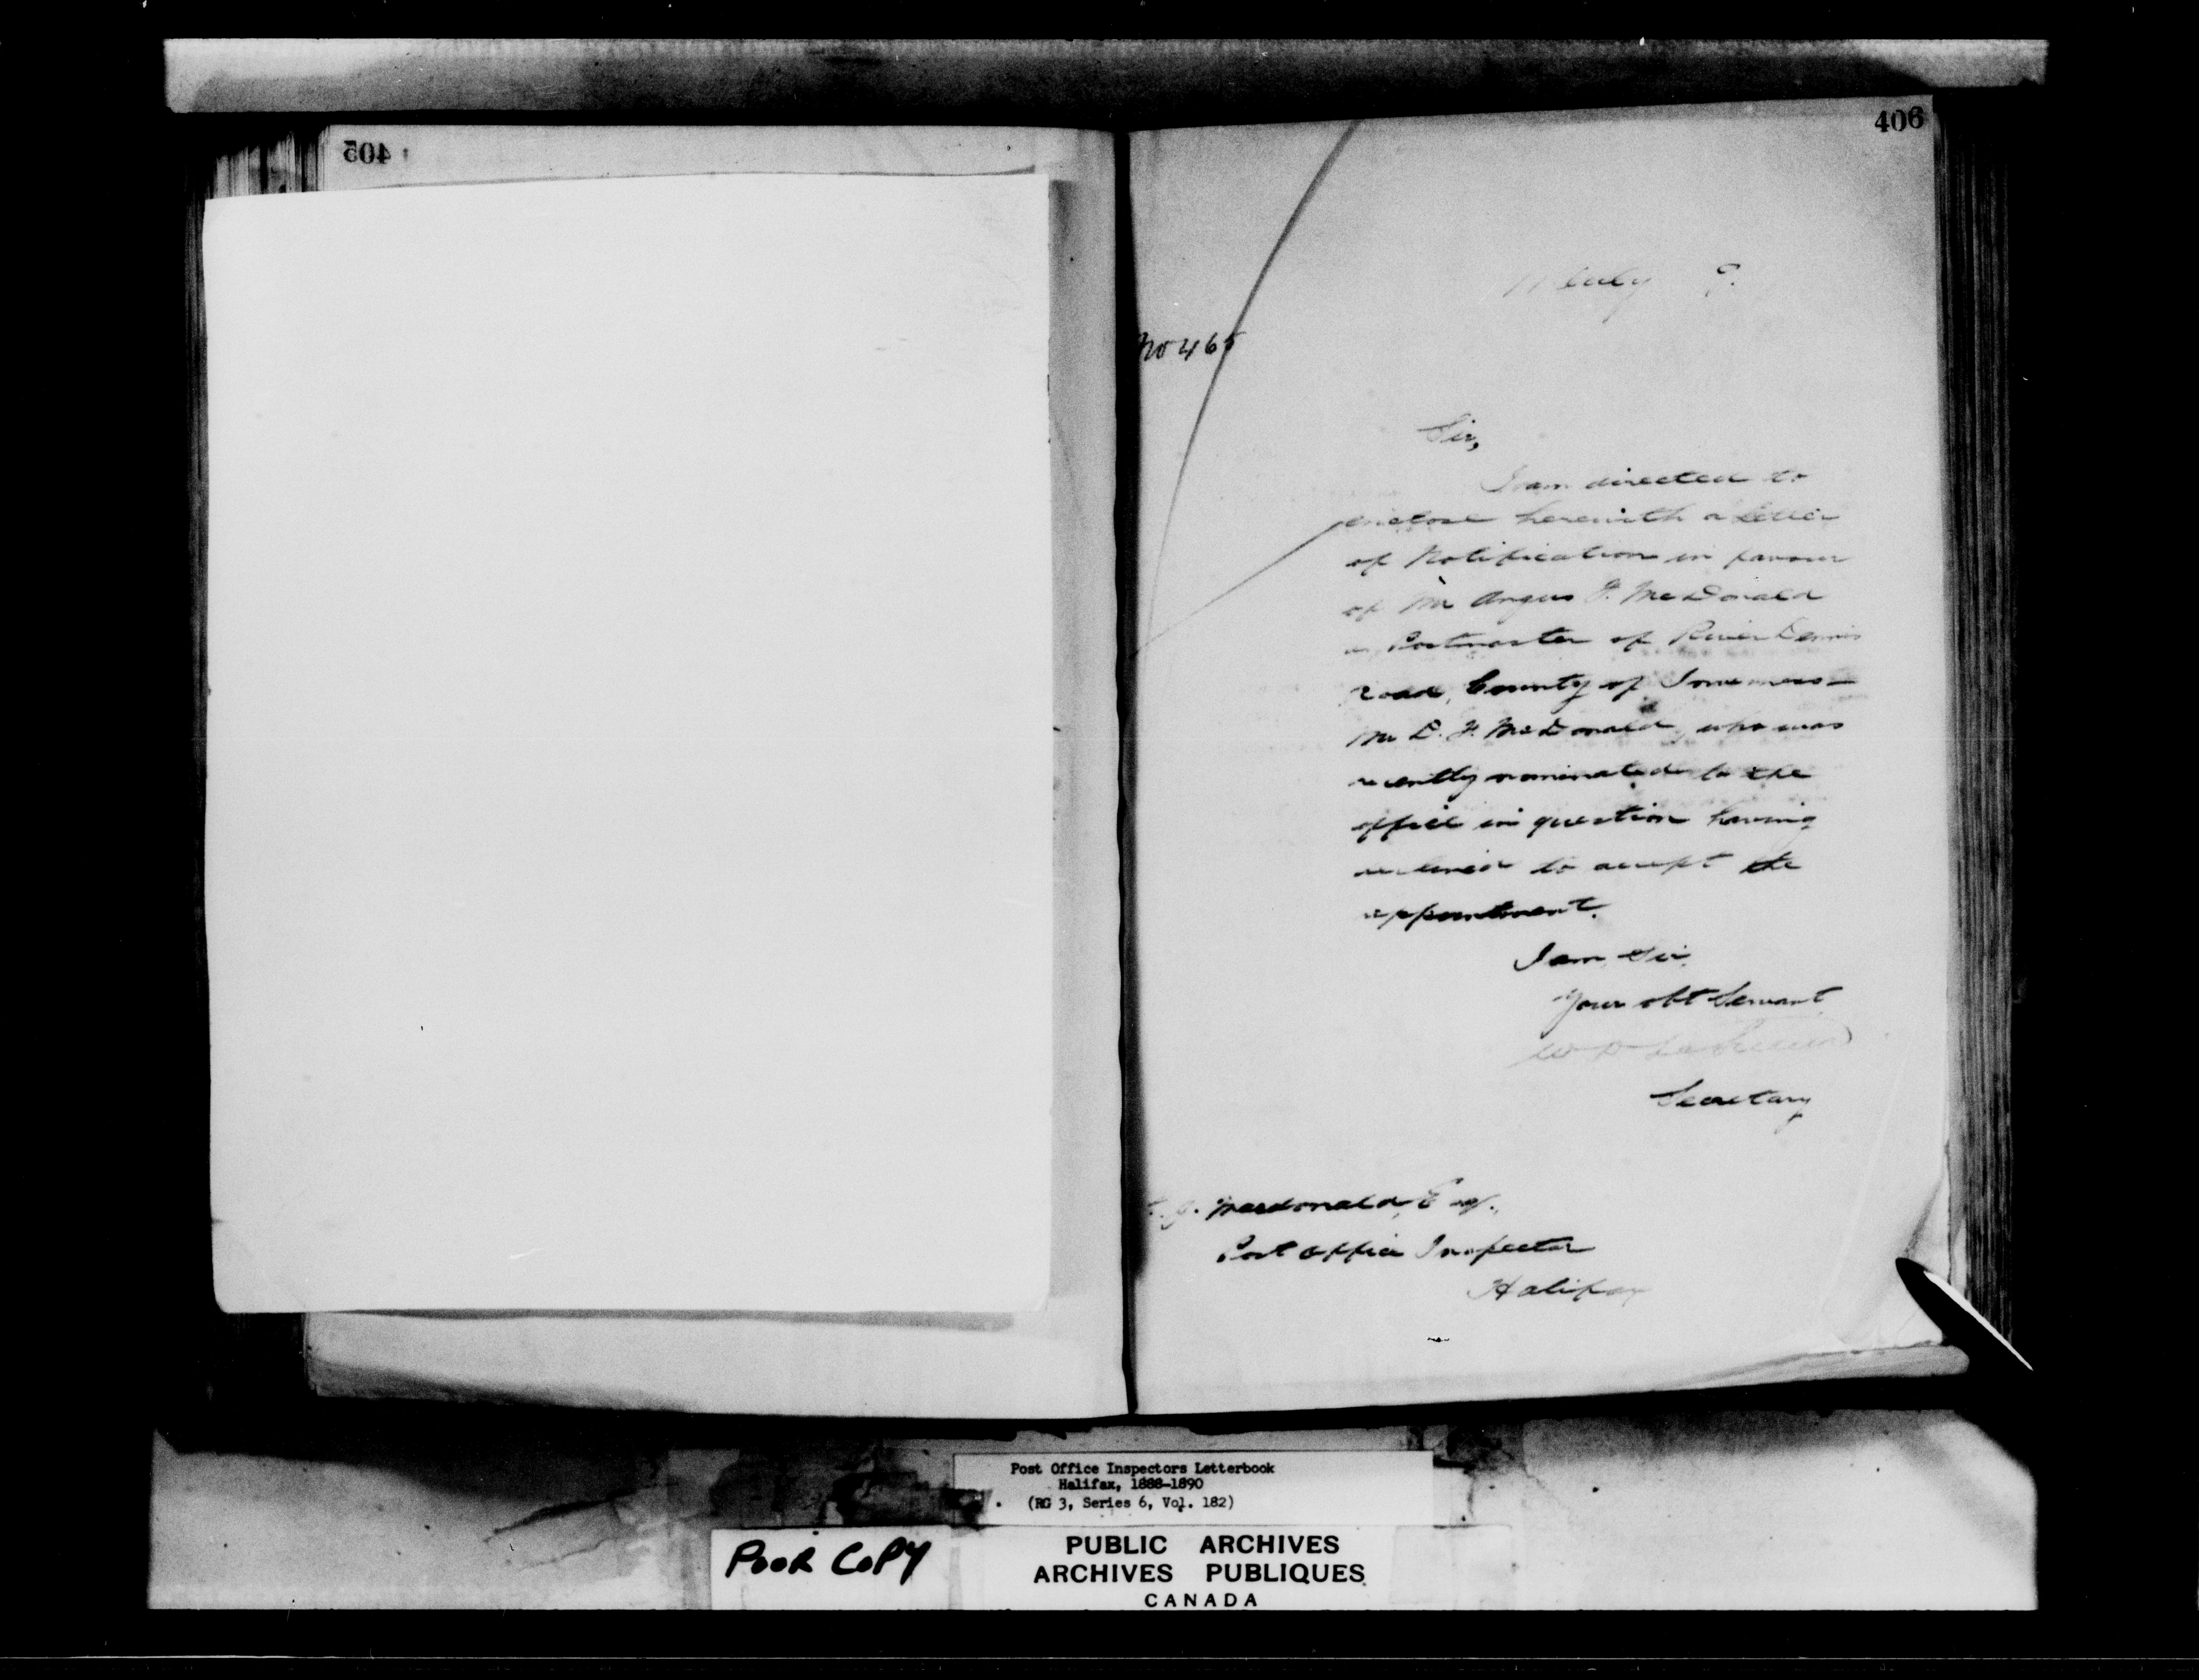 405
406
July 9.
No 465
Sir,
I am directed to
enclose herewith a Letter
of Notification in favour
of Mr Angus F. McDonald
as Postmaster of River Dennis
Road, County of Inverness—
Mr D. F. McDonald, who was
recently nominated to the
office in question having
declined to accept the
appointment.
I am, Sir,
Your obt Servant
Secretary
J. Macdonald, Esq.,
Post Office Inspector
Halifax
Post Office Inspectors Letterbook
Halifax, 1888-1890
(RG 3, Series 6, Vol. 182)
POOR COPY
PUBLIC ARCHIVES
ARCHIVES PUBLIQUES
CANADA